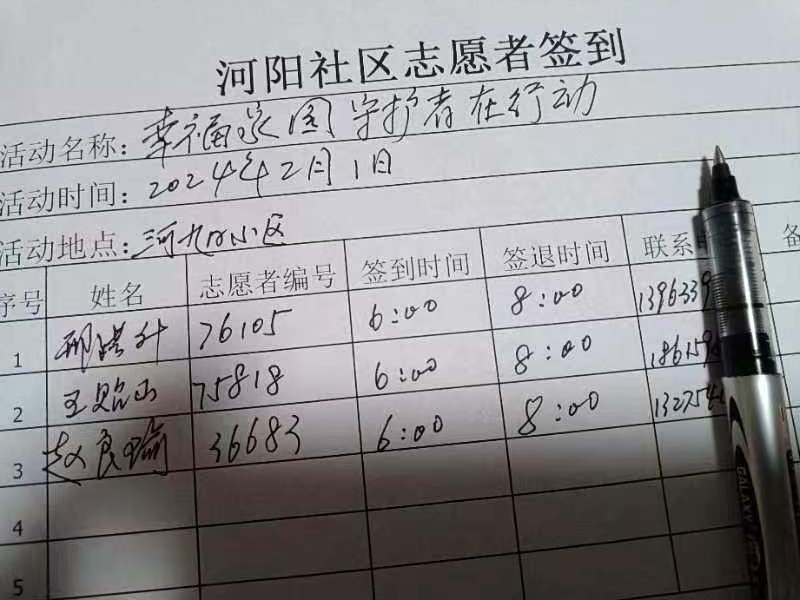 河阳社区志愿者签到
活动名称：幸福家园 守护者在行动
活动时间：2024年2月1日
活动地点：河九小区
序号 姓名 志愿者编号 签到时间 签退时间 联系 备
1 76105 6:00 8:00 1396339
2 王贻山 75818 6:00 8:00 186159
3 赵良瑜 36683 6:00 8:00 132754
4
5
GALAXY